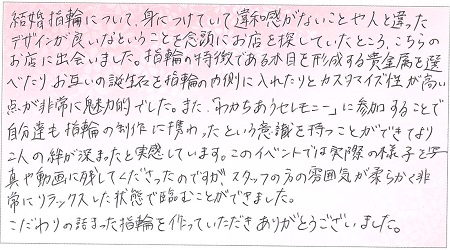 結婚指輪について、身につけていて違和感がないことや人と違った
デザインが良いなということを念頭にお店を探していたところ、こちらの
お店に出会いました。指輪の特徴である木目を形成する貴金属を選
べたり、お互いの誕生石を指輪の内側に入れたりとカスタマイズ性が高い
点が非常に魅力的でした。また、「わかちあうセレモニー」に参加することで
自分達も指輪の制作に携わったという意識を持つことができてより
二人の絆が深まったと実感しています。このイベントでは実際の様子を写
真や動画に残してくださったのですが、スタッフの方の雰囲気が柔らかく非
常にリラックスした状態で臨むことができました。
こだわりの詰まった指輪を作っていただきありがとうございました。